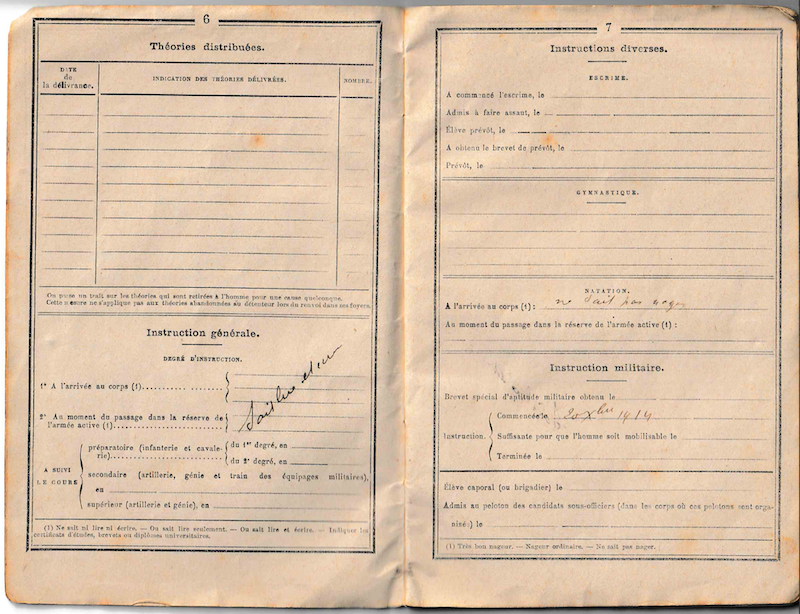 6
Théories distribuées.
DATE
de
la délivrance.
INDICATION DES THÉORIES DÉLIVRÉES.
NOMBRE.
On passe un trait sur les théories qui sont retirées à l'homme pour une cause quelconque.
Cette mesure ne s'applique pas aux théories abandonnées au détenteur lors du renvoi dans ses foyers.
Instruction générale.
DEGRÉ D'INSTRUCTION.
1° A l'arrivée au corps (1)
Sait lire et
2° Au moment du passage dans la réserve de
l'armée active (1)
A SUIVI
LE COURS
préparatoire (infanterie et cavale-
rie)
du 1er degré, en
du 2e degré, en
secondaire (artillerie, génie et train des équipages militaires),
en
supérieur (artillerie et génie), en
(1) Ne sait ni lire ni écrire. — Ou sait lire seulement. — Ou sait lire et écrire. — Indiquer les
certificats d'études, brevets ou diplômes universitaires.
7
Instructions diverses.
ESCRIME.
A commencé l'escrime, le
Admis à faire assaut, le
Élève prévôt, le
A obtenu le brevet de prévôt, le
Prévôt, le
GYMNASTIQUE.
NATATION.
A l'arrivée au corps (1) : ne sait pas nager
Au moment du passage dans la réserve de l'armée active (1) :
Instruction militaire.
Brevet spécial d'aptitude militaire obtenu le
Instruction.
Commencée le 20 Xbre 1914
Suffisante pour que l'homme soit mobilisable le
Terminée le
Élève caporal (ou brigadier) le
Admis au peloton des candidats sous-officiers (dans les corps où ces pelotons sont orga-
nisé:) le
(1) Très bon nageur. — Nageur ordinaire. — Ne sait pas nager.